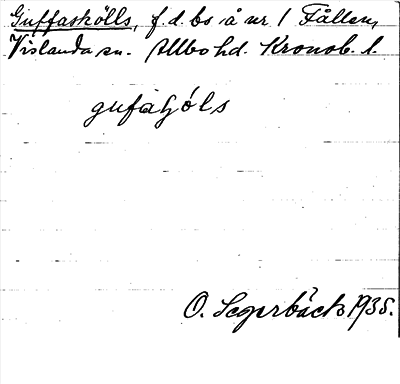 Guffaskölls, f.d. bs å nr 1 Fållen,
Vislanda sn. Allbo hd. Kronob. l.
O. Segerbäck 1935.